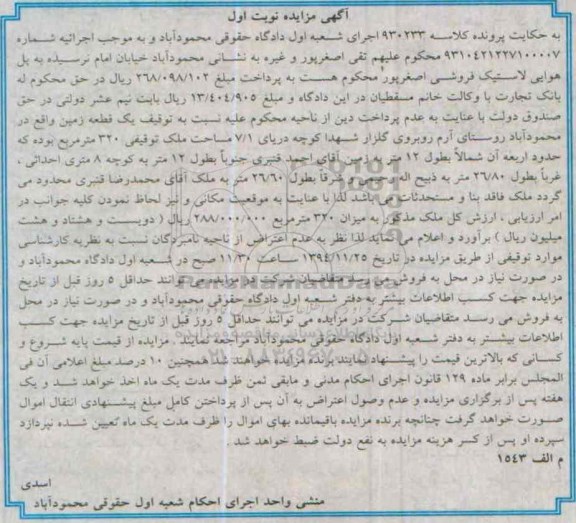 آگهی مزایده نوبت اول
به حکایت پرونده کلاسه ۹۳۰۲۳۳ اجرای شعبه اول دادگاه حقوقی محمودآباد و به موجب اجرائیه شماره
۹۳۱۰۴۲۱۲۲۷۱۰۰۰۰۷ محکوم علیهم تقی اصغرپور و غیره به نشانی محمودآباد خیابان امام نرسیده به پل
هوایی لاستیک فروشی اصغرپور محکوم هست به پرداخت مبلغ ۲۶۸/۰۹۸/۱۰۲ ریال در حق محکوم له
بانک تجارت با وکالت خانم مسقطیان در این دادگاه و مبلغ ۱۳/۴۰۴/۹۰۵ ریال بابت نیم عشر دولتی در حق
صندوق دولت با عنایت به عدم پرداخت دین از ناحیه محکوم علیه نسبت به توقیف یک قطعه زمین واقع در
محمودآباد روستای آرم روبروی گلزار شهدا کوچه دریای ۷/۱ مساحت ملک توقیفی ۳۲۰ مترمربع بوده که
حدود اربعه آن شمالاً بطول ۱۲ متر به زمین آقای احمد قنبری جنوباً بطول ۱۲ متر به کوچه ۸ متری احداثی ،
غرباً بطول ۲۶/۸۰ متر به ذبیح اله رحیمی و شرقاً بطول ۲۶/۶۰ متر به ملک آقای محمدرضا قنبری محدود می
گردد ملک فاقد بنا و مستحدثات می باشد لذا با عنایت به موقعیت مکانی و نیز لحاظ نمودن کلیه جوانب در
امر ارزیابی ، ارزش کل ملک مذکور به میزان ۳۲۰ مترمربع ۲۸۸/۰۰۰/۰۰۰ ریال ( دویست و هشتاد و هشت
میلیون ریال ) برآورد و اعلام می نماید لذا نظر به عدم اعتراض از ناحیه نامبردگان نسبت به نظریه کارشناسی
موارد توقیفی از طریق مزایده در تاریخ ۱۳۹۴/۱۱/۲۵ ساعت ۱۱/۳۰ صبح در شعبه اول دادگاه محمودآباد و
در صورت نیاز در محل به فروش می رسد متقاضیان شرکت در مزایده می توانند حداقل ۵ روز قبل از تاریخ
مزایده جهت کسب اطلاعات بیشتر به دفتر شعبه اول دادگاه حقوقی محمودآباد و در صورت نیاز در محل
به فروش می رسد متقاضیان شرکت در مزایده می توانند حداقل ۵ روز قبل از تاریخ مزایده جهت کسب
اطلاعات بیشتر به دفتر شعبه اول دادگاه حقوقی محمودآباد مراجعه نمایند . مزایده از قیمت پایه شروع و
کسانی که بالاترین قیمت را پیشنهاد نمایند برنده مزایده خواهند شد همچنین ۱۰ درصد مبلغ اعلامی آن فی
المجلس برابر ماده ۱۲۹ قانون اجرای احکام مدنی و مابقی ثمن ظرف مدت یک ماه اخذ خواهد شد و یک
هفته پس از برگزاری مزایده و عدم وصول اعتراض به آن پس از پرداختن کامل مبلغ پیشنهادی انتقال اموال
صورت خواهد گرفت چنانچه برنده مزایده باقیمانده بهای اموال را ظرف مدت یک ماه تعیین شده نپردازد
سپرده او پس از کسر هزینه مزایده به نفع دولت ضبط خواهد شد .
م الف ۱۵۴۳
اسدی
منشی واحد اجرای احکام شعبه اول حقوقی محمودآباد